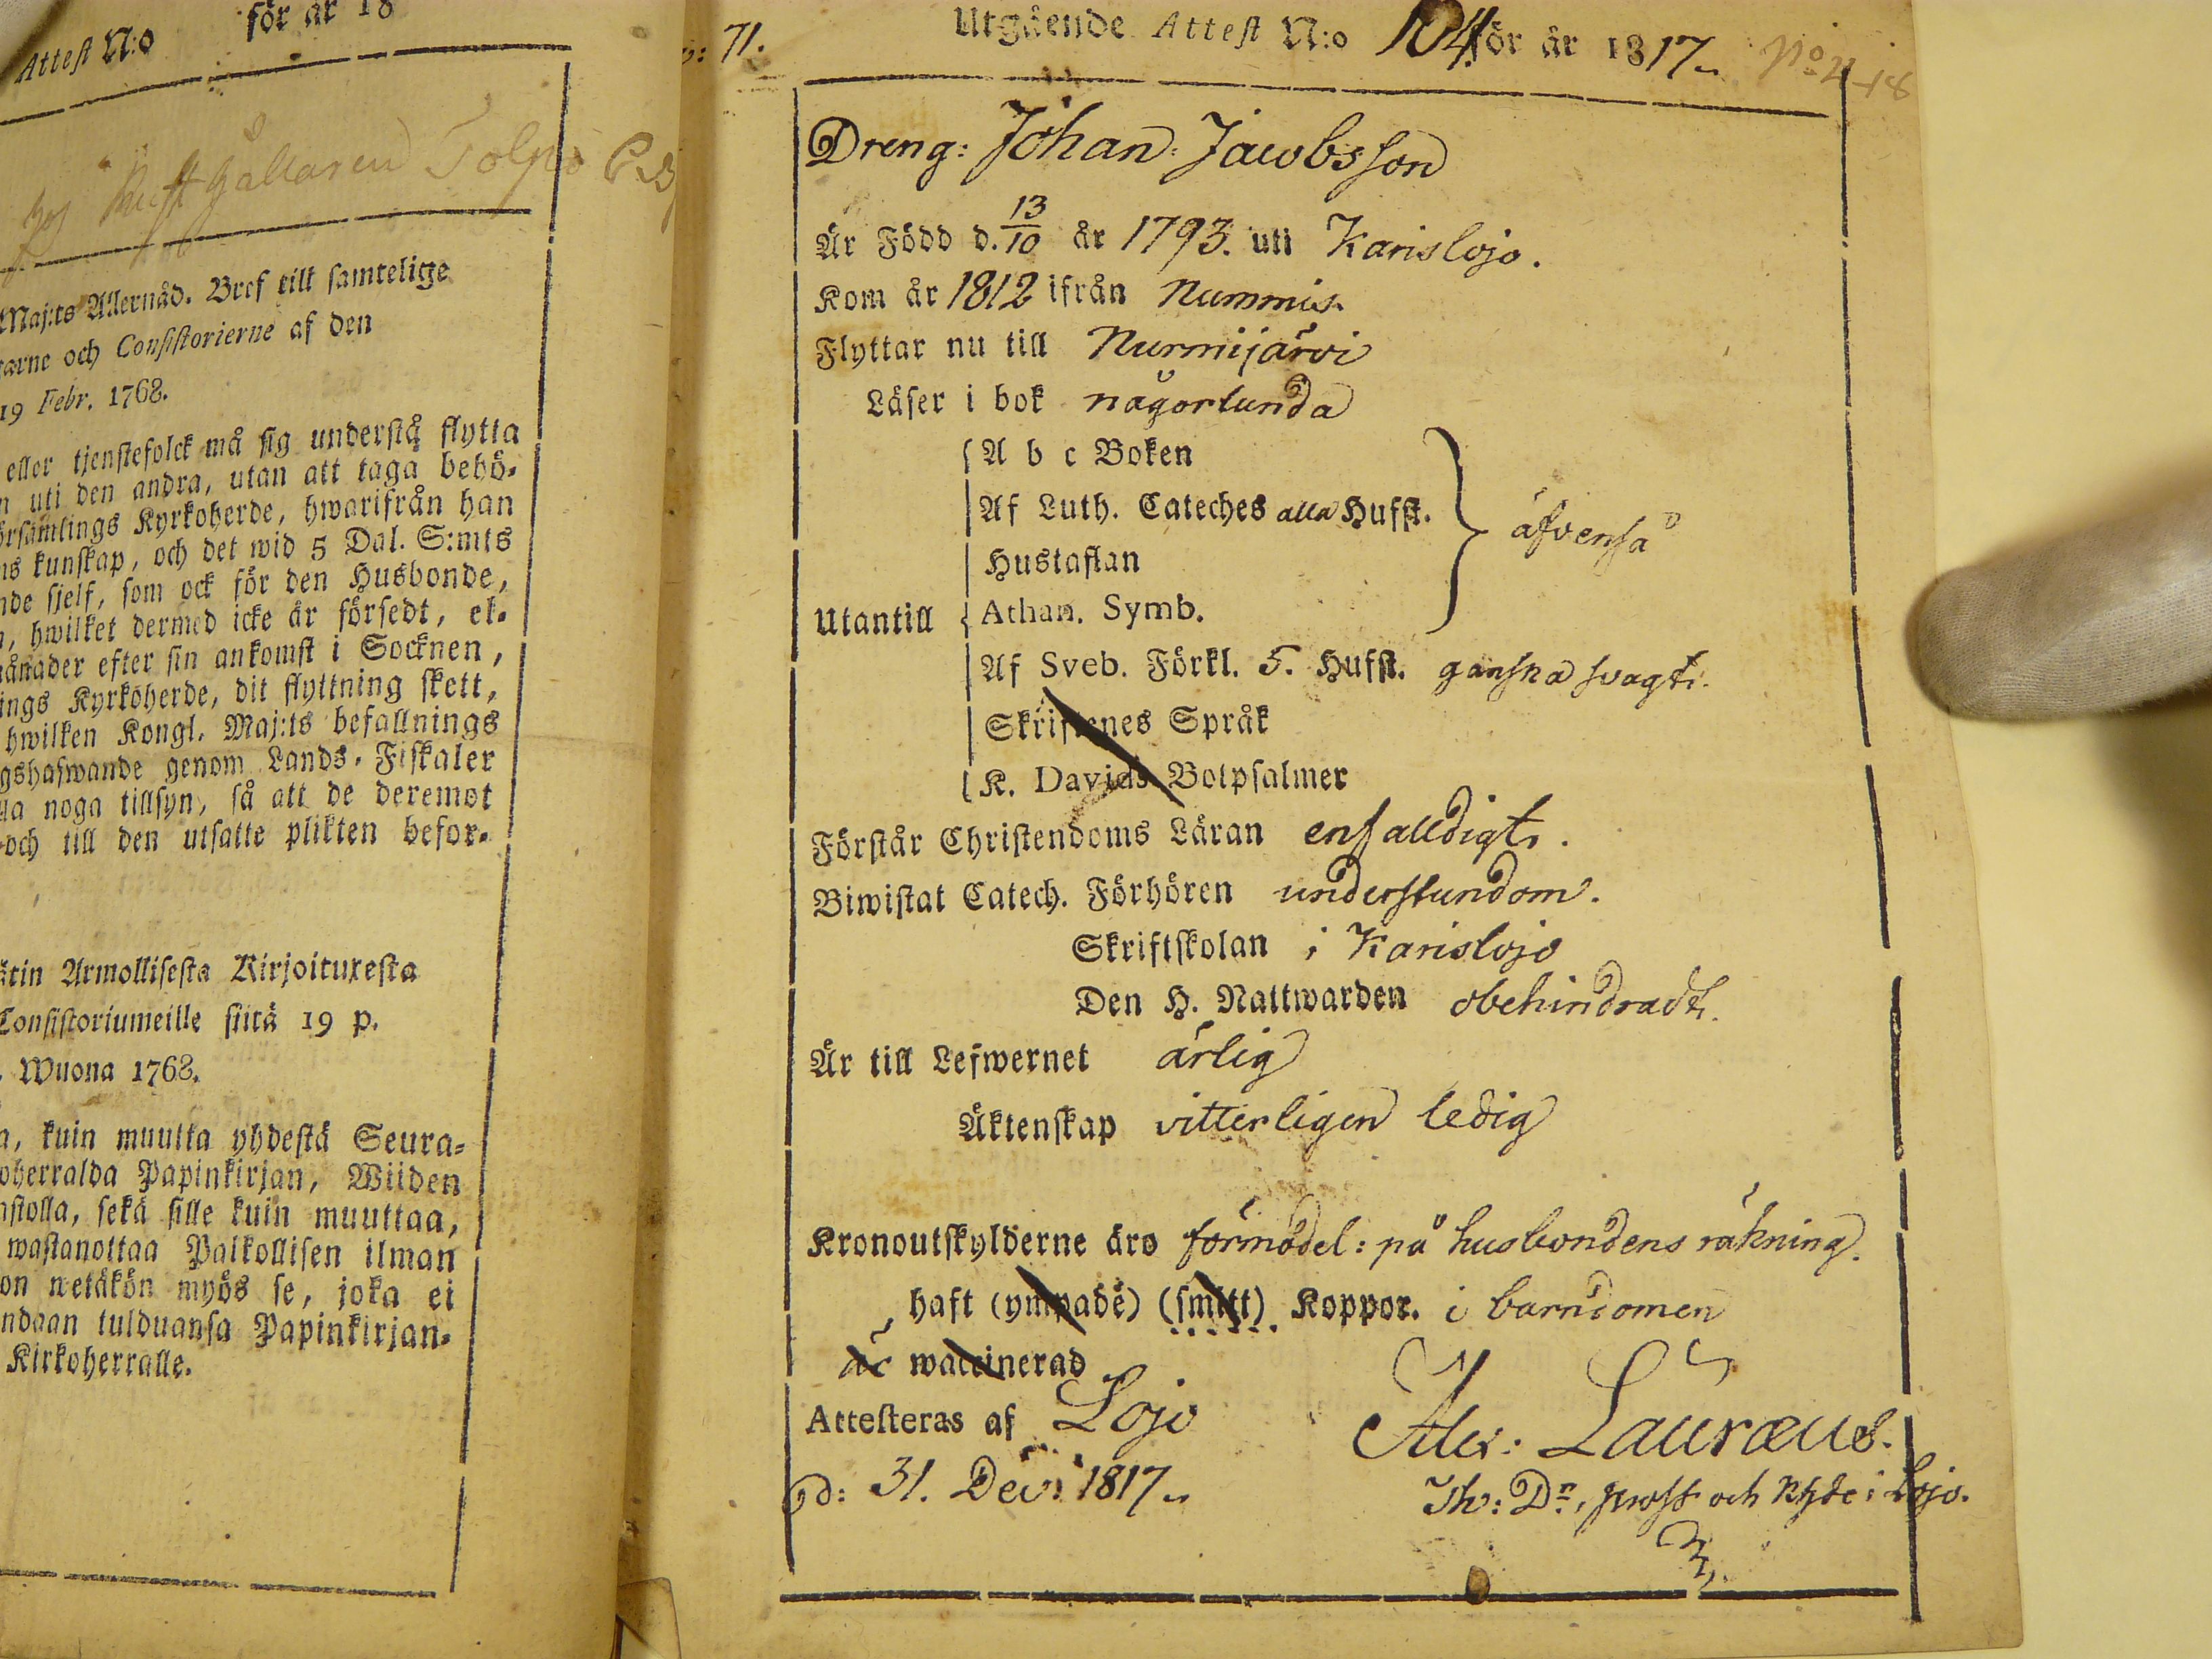 Attest N:o för år 18
Rusthållaren Tolpo
Maj:ts Allernåd. Bref till samtelige
och Consistorierne af den
19 Febr. 1768.
eller tjenstefolck må sig understå flytta
uti den andra, utan att taga behö-
församlings Kyrkoherde, hwarifrån han
kunskap, och det wid 5 Dal. S:mts
sjelf, som ock för den Husbonde,
hwilket dermed icke är försedt, el-
månader efter sin ankomst i Socknen,
Kyrkoherde, dit flyttning skett,
hwilken Kongl. Maj:ts befallnings
genom Lands-Fiskaler
noga tillsyn, så att de deremot
och till den utsatte plikten befor-
Armollisesta Kirjoituxesta
Consistoriumeille siitä 19 p.
Wuona 1768.
kuin muutta yhdestä Seura-
Papinkirjan, Wiiden
sekä sille kuin muuttaa,
wastanottaa Palkollisen ilman
on wetäkön myös se, joka ei
tulduansa Papinkirjan-
Kirkoherralle.
71.
Utgående Attest N:o 104. för år 1817
Dreng: Johan Jacobsson
Är Född d. 13/10 år 1793. uti Karislojo.
Kom år 1812 ifrån Nummis.
Flyttar nu till Nurmijärvi
Läser i bok någorlunda
A b c Boken
Af Luth. Cateches alla Hufst. äfvenså
Hustaflan
Utantill Athan. Symb.
Af Sveb. Förkl. 5. Hufst. ganska svagt.
Skriftenes Språk
K. Davids Botpsalmer
Förstår Christendoms Läran enfalldigt.
Biwistat Catech. Förhören understundom.
Skriftskolan i Karislojo
Den H. Nattwarden obehindradt.
Är till Lefwernet ärlig
Äktenskap vitterligen ledig
Kronoutskylderne äro förmodel: på husbondens räkning.
haft (ympade) (smitt) Koppor. i barndomen
är waccinerad
Attesteras af Lojo Alex: Lauræus.
d: 31. Dec: 1817 Th: Dr, prost och Khde i Lojo.